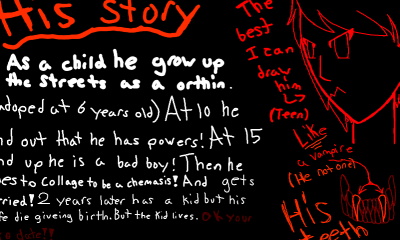 His story
As a child he grow up
the streets as a orthin.
adoped at 6 years old) At 10 he
nd out that he has powers! At 15
nd up he is a bad boy! Then he
oes to collage to be a chemasis! And gets
rried! 2 years later has a kid but his
ife die giveing birth. But the kid lives. Ok your
a date!!
The
best
I can
draw
him
(Teen)
Like
a vampire
(He not one)
His
teeth